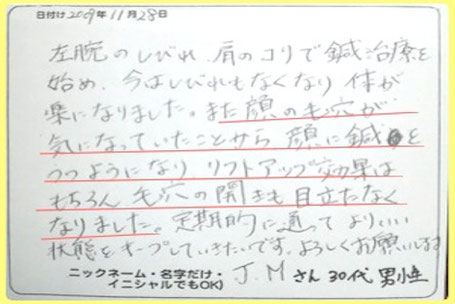 日付け2009年11月28日
左腕のしびれ、肩のコリで鍼治療を
始め、今はしびれもなくなり 体が
楽になりました。また顔の毛穴が
気になっていたことから 顔に鍼を
うつようになり リフトアップ効果は
もちろん 毛穴の開きも目立たなく
なりました。定期的に通って よりいい
状態をキープしていきたいです。よろしくお願いします
ニックネーム・名字だけ・
イニシャルでもOK) J.M さん 30代 男性